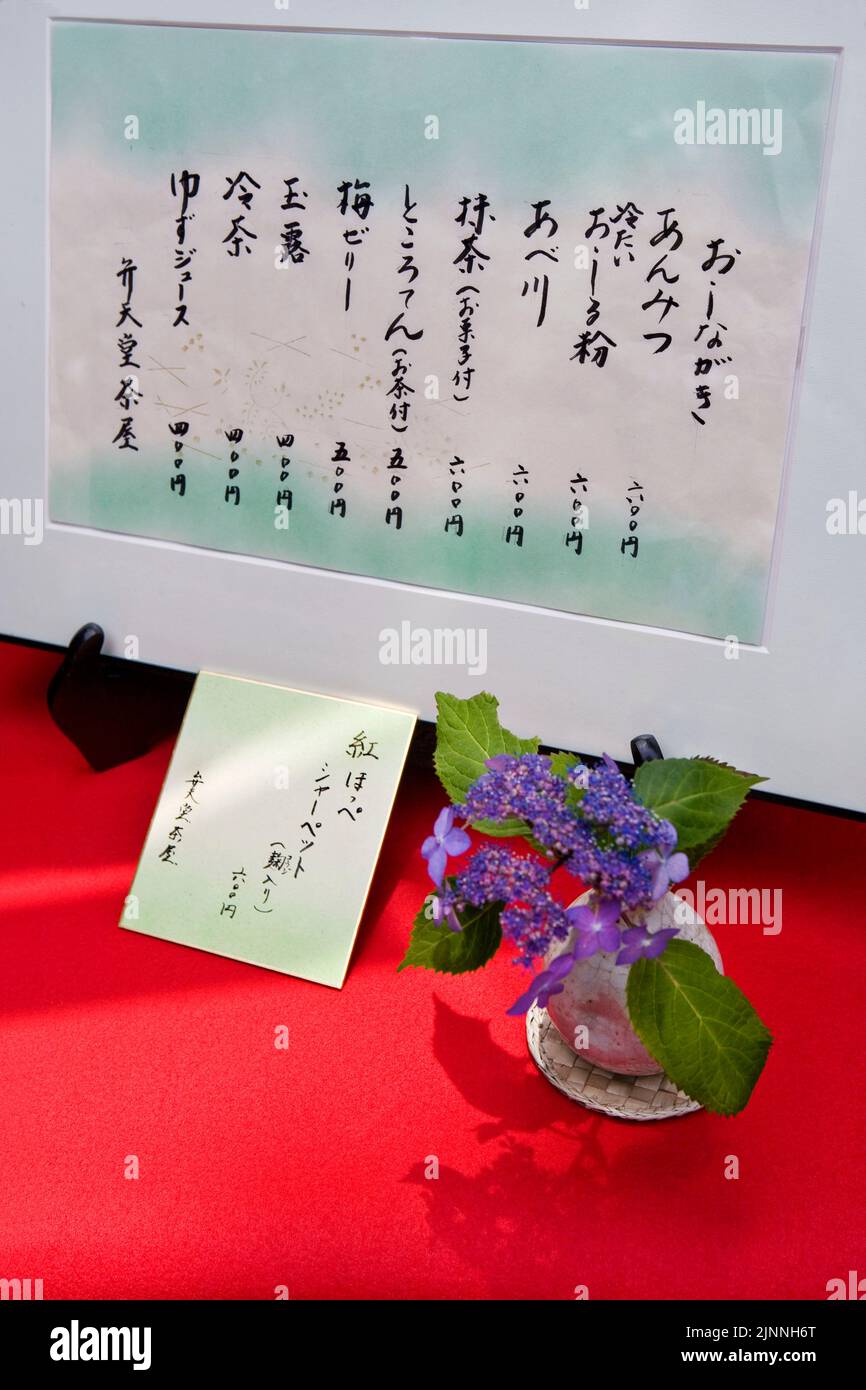 おしながき
あんみつ 六〇〇円
冷たい
おしる粉 六〇〇円
あべ川 六〇〇円
抹茶(お菓子付) 六〇〇円
ところてん(お茶付) 五〇〇円
梅ゼリー 五〇〇円
玉露 四〇〇円
冷茶 四〇〇円
ゆずジュース 四〇〇円
弁天堂茶屋
紅ほっぺ
シャーベット
(麹入り)
六〇〇円
弁天堂茶屋
alamy
alamy
Image ID: 2JNNH6T
www.alamy.com